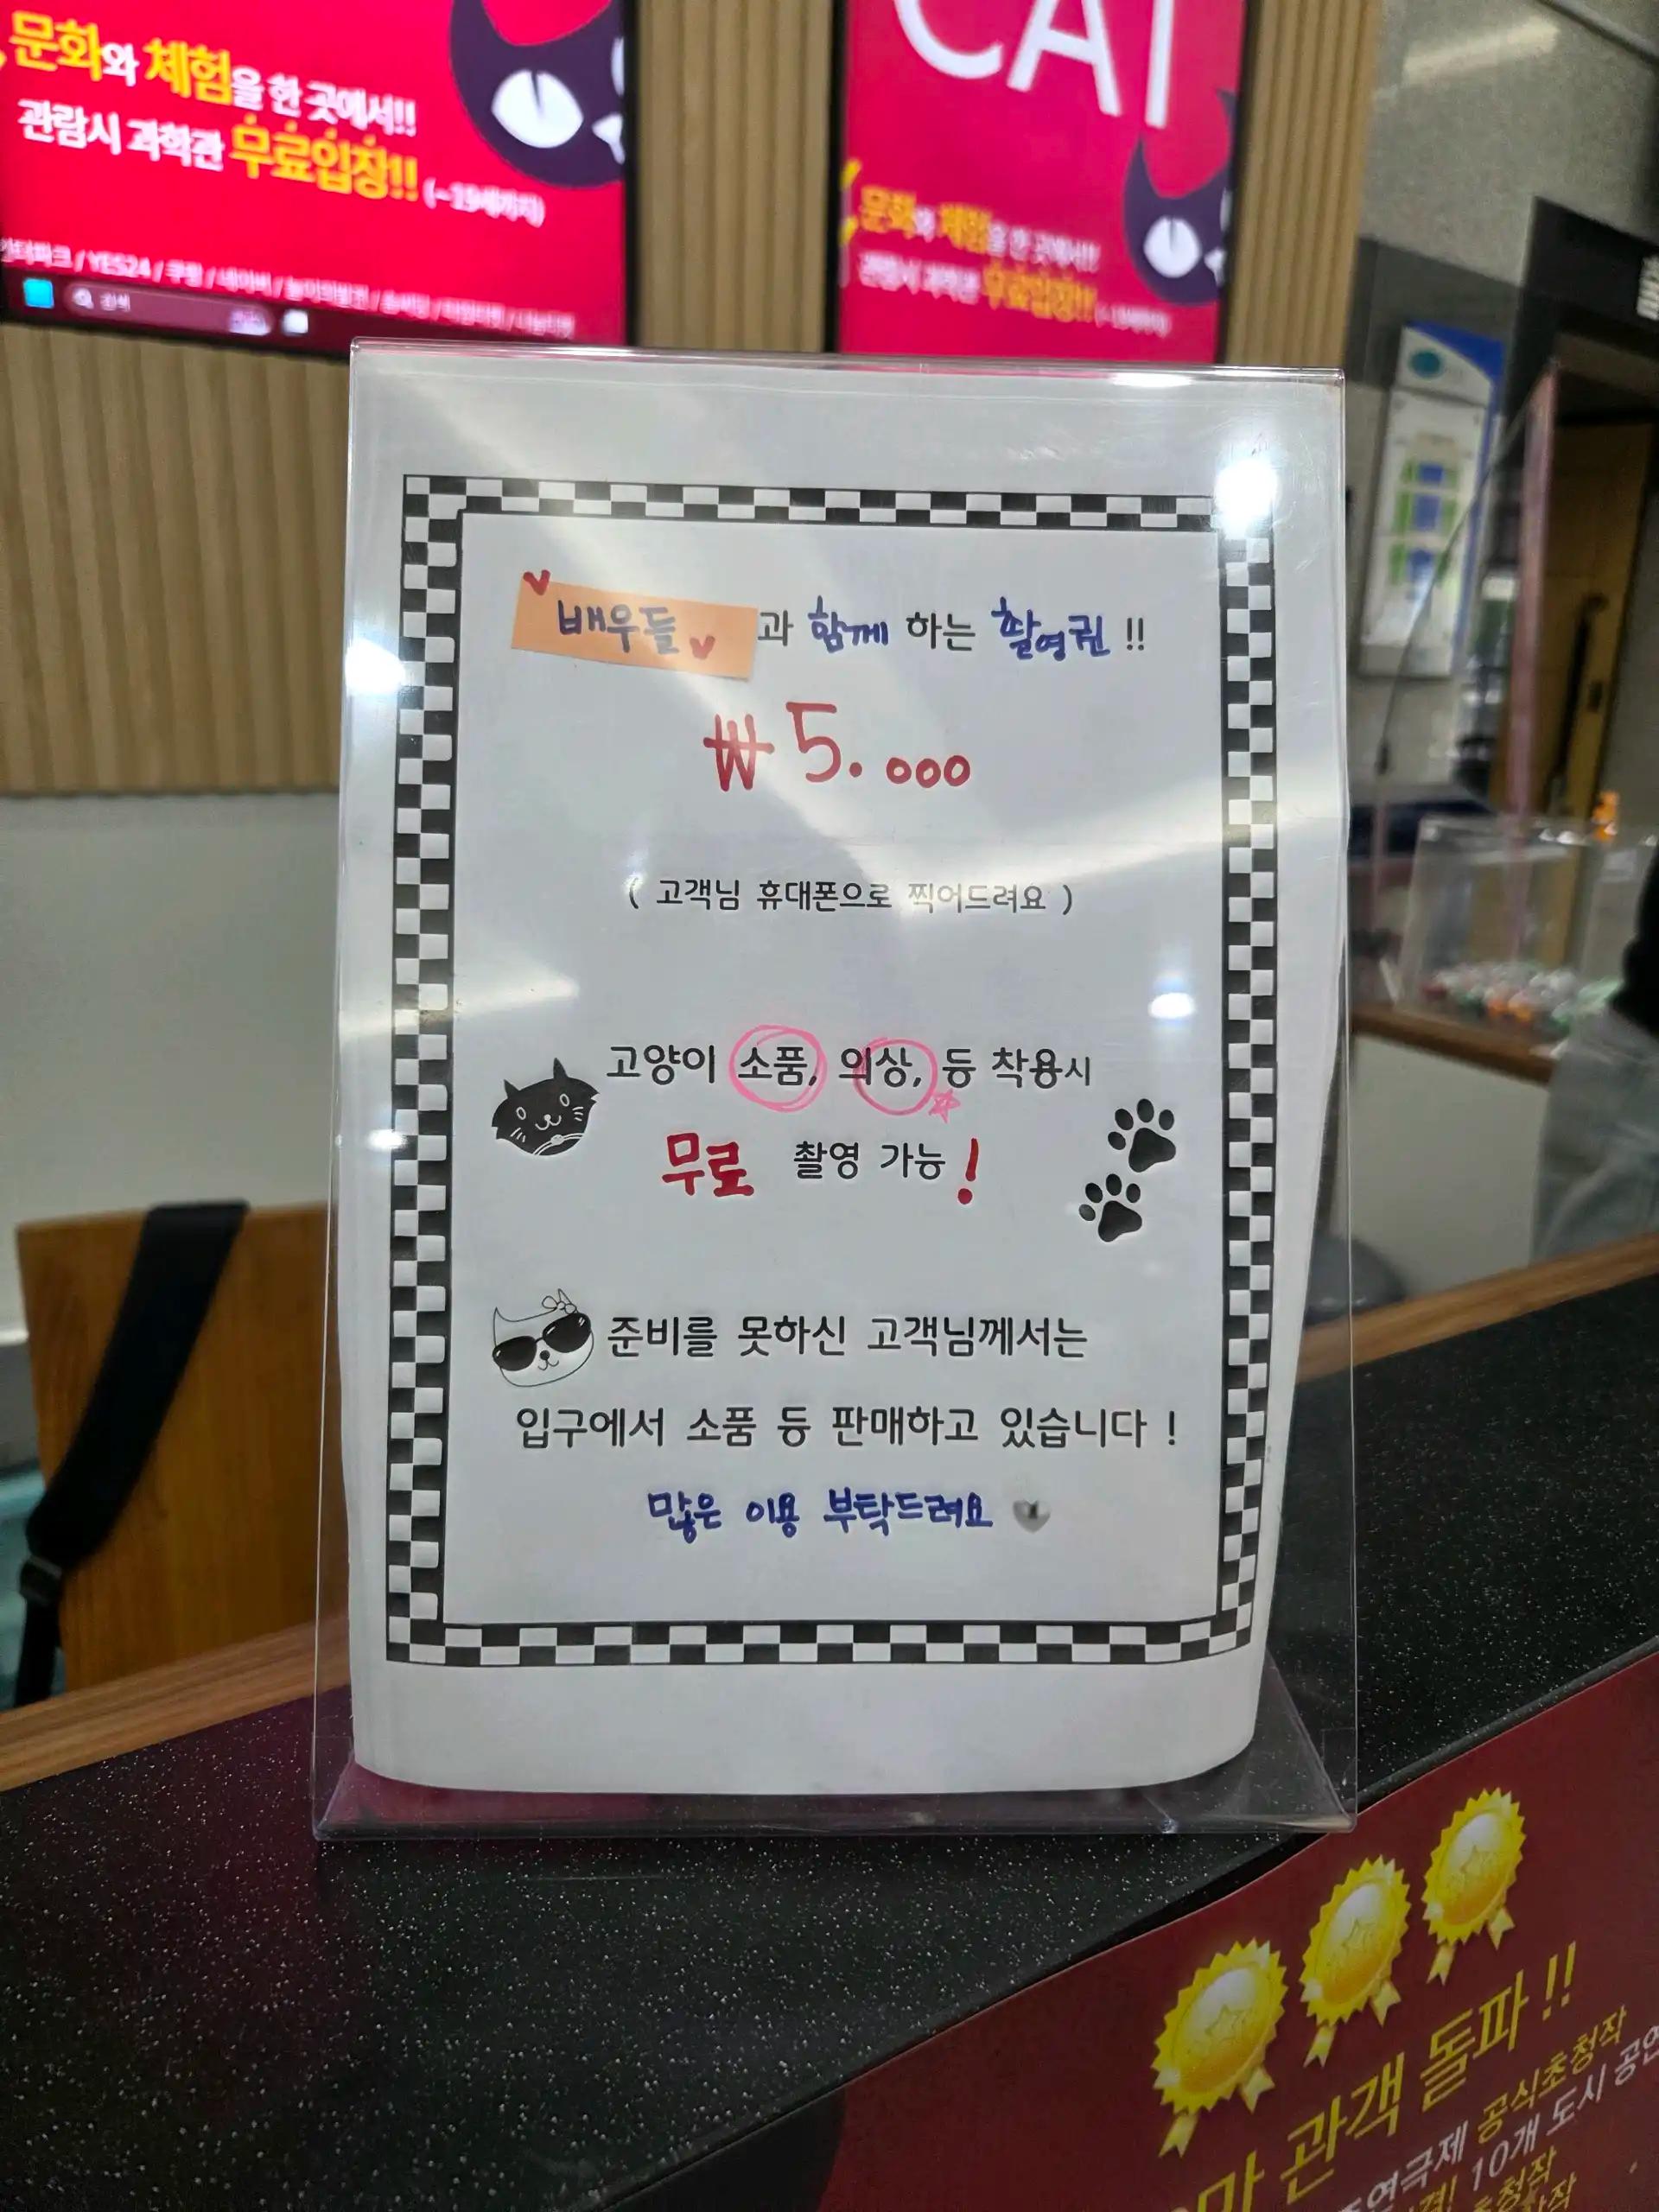 문화와 체험을 한 곳에서!!
관람시 과학관 무료입장!! (~19세까지)
인터파크 / YES24 / 쿠팡 / 네이버 /
검색
CAT
문화와 체험을 한 곳에서!!
관람시 과학관 무료입장!! (~19세까지)
배우들과 함께 하는 촬영권 !!
₩5.000
( 고객님 휴대폰으로 찍어드려요 )
고양이 소품, 의상, 등 착용시
무료 촬영 가능!
준비를 못하신 고객님께서는
입구에서 소품 등 판매하고 있습니다 !
많은 이용 부탁드려요
만 관객 돌파!!
연극제 공식초청작
10개 도시 공연
초청작